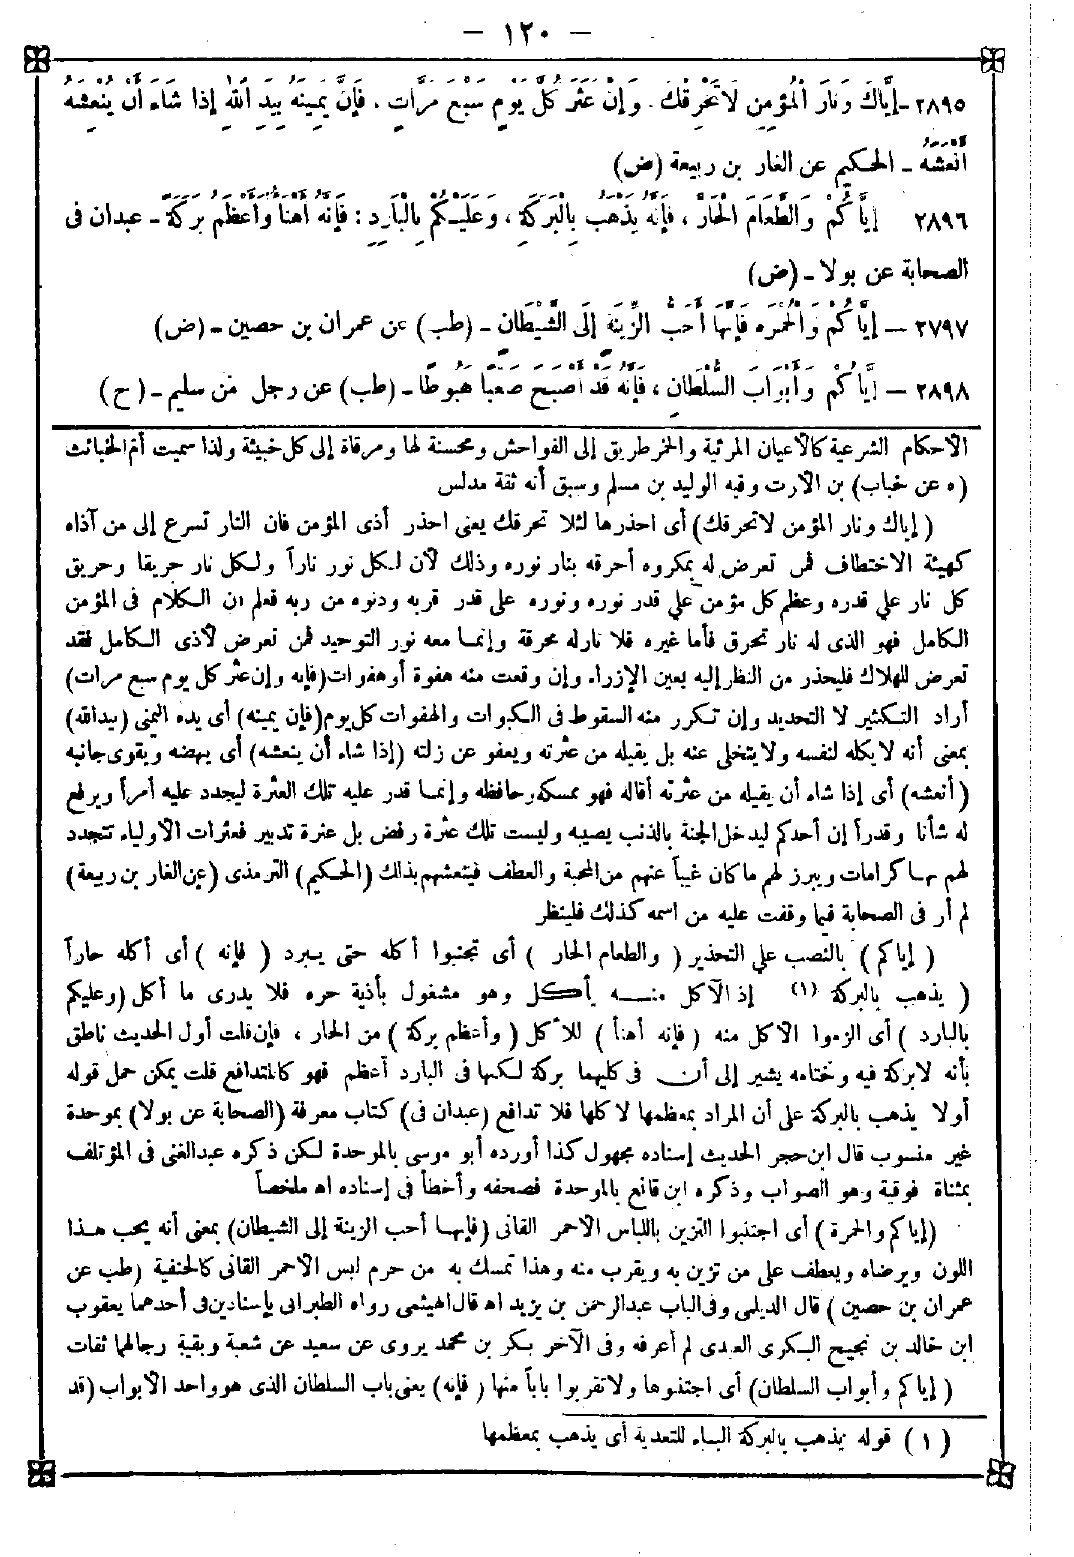 — ١٢٠ —
٢٨٩٥ - إِيَّاكَ وَنَارَ الْمُؤْمِنِ لَا تَحْرِقْكَ . وَإِنْ عَثَرَ كُلَّ يَوْمٍ سَبْعَ مَرَّاتٍ ، فَإِنَّ يَمِينَهُ بِيَدِ اللهِ إِذَا شَاءَ أَنْ يُنْعِشَهُ
أَنْعَشَهُ - الحكيم عن الغار بن ربيعة (ض)
٢٨٩٦ إِيَّاكُمْ وَالطَّعَامَ الْحَارَّ ، فَإِنَّهُ يَذْهَبُ بِالْبَرَكَةِ ، وَعَلَيْكُمْ بِالْبَارِدِ : فَإِنَّهُ أَهْنَأُ وَأَعْظَمُ بَرَكَةً - عبدان فى
الصحابة عن بولا - (ض)
٢٧٩٧ — إِيَّاكُمْ وَالْحُمْرَه فَإِنَّهَا أَحَبُّ الزِّينَةِ إِلَى الشَّيْطَانِ - (طب) عن عمران بن حصين - (ض)
٢٨٩٨ — إِيَّاكُمْ وَأَبْوَابَ السُّلْطَانِ ، فَإِنَّهُ قَدْ أَصْبَحَ صَعْبًا هَبُوطًا - (طب) عن رجل من سليم - (ح)
الأحكام الشرعية كالأعيان المرئية والخمر طريق إلى الفواحش ومحسنة لها ومرقاة إلى كل خبيثة ولذا سميت أم الخبائث
(ه عن خباب) بن الأرت وفيه الوليد بن مسلم وسبق أنه ثقة مدلس
(إياك ونار المؤمن لا تحرقك) أى احذرها لئلا تحرقك يعنى احذر أذى المؤمن فان النار تسرع إلى من آذاه
كهيئة الاختطاف فمن تعرض له بمكروه أحرقه بنار نوره وذلك لأن لكل نور ناراً ولكل نار حريقا وحريق
كل نار على قدره وعظم كل مؤمن على قدر نوره ونوره على قدر قربه ودنوه من ربه فعلم أن الكلام فى المؤمن
الكامل فهو الذى له نار تحرق فأما غيره فلا نار له محرقة وإنما معه نور التوحيد فمن تعرض لأذى الكامل فقد
تعرض للهلاك فليحذر من النظر إليه بعين الإزراء وإن وقعت منه هفوة أو هفوات (فإنه وإن عثر كل يوم سبع مرات)
أراد التكثير لا التحديد وإن تكرر منه السقوط فى الكبوات والهفوات كل يوم (فإن يمينه) أى يده اليمنى (بيد الله)
بمعنى أنه لا يكله لنفسه ولا يتخلى عنه بل يقيله من عثرته ويعفو عن زلته (إذا شاء أن ينعشه) أى ينهضه ويقوى جانبه
(أنعشه) أى إذا شاء أن يقيله من عثرته أقاله فهو ممسكه وحافظه وإنما قدر عليه تلك العثرة ليجدد عليه أمراً ويرفع
له شأنا وقدراً إن أحدكم ليدخل الجنة بالذنب يصيبه وليست تلك عثرة رفض بل عثرة تدبير فعثرات الأولياء تتجدد
لهم بها كرامات ويبرز لهم ما كان غيباً عنهم من المحبة والعطف فينعشهم بذلك (الحكيم) الترمذى (عن الغار بن ربيعة)
لم أر فى الصحابة فيما وقفت عليه من اسمه كذلك فلينظر
(إياكم) بالنصب على التحذير (والطعام الحار) أى تجنبوا أكله حتى يبرد (فإنه) أى أكله حاراً
(يذهب بالبركة (١) إذ الآكل منه يأكل وهو مشغول بأذية حره فلا يدرى ما أكل (وعليكم
بالبارد) أى الزموا الأكل منه (فإنه أهنأ) للأكل (وأعظم بركة) من الحار ، فإن قلت أول الحديث ناطق
بأنه لا بركة فيه وختامه يشير إلى أن فى كليهما بركة لكنها فى البارد أعظم فهو كالمتدافع قلت يمكن حمل قوله
أولا يذهب بالبركة على أن المراد بمعظمها لا كلها فلا تدافع (عبدان فى) كتاب معرفة (الصحابة عن بولا) بموحدة
غير منسوب قال ابن حجر الحديث إسناده مجهول كذا أورده أبو موسى بالموحدة لكن ذكره عبد الغنى فى المؤتلف
بمثناة فوقية وهو الصواب وذكره ابن قانع بالموحدة فصحفه وأخطأ فى إسناده اه ملخصاً
(إياكم والحمرة) أى اجتنبوا التزين باللباس الأحمر القانى (فإنها أحب الزينة إلى الشيطان) بمعنى أنه يحب هذا
اللون ويرضاه ويعطف على من تزين به ويقرب منه وهذا تمسك به من حرم لبس الأحمر القانى كالحنفية (طب عن
عمران بن حصين) قال الديلمى وفى الباب عبد الرحمن بن يزيد اه قال الهيثمى رواه الطبرانى بإسنادين فى أحدهما يعقوب
ابن خالد بن نجيح البكرى العبدى لم أعرفه وفى الآخر بكر بن محمد يروى عن سعيد عن شعبة وبقية رجالهما ثقات
(إياكم وأبواب السلطان) أى اجتنبوها ولا تقربوا باباً منها (فإنه) يعنى باب السلطان الذى هو واحد الأبواب (قد
(١) قوله يذهب بالبركة الباء للتعدية أى يذهب بمعظمها